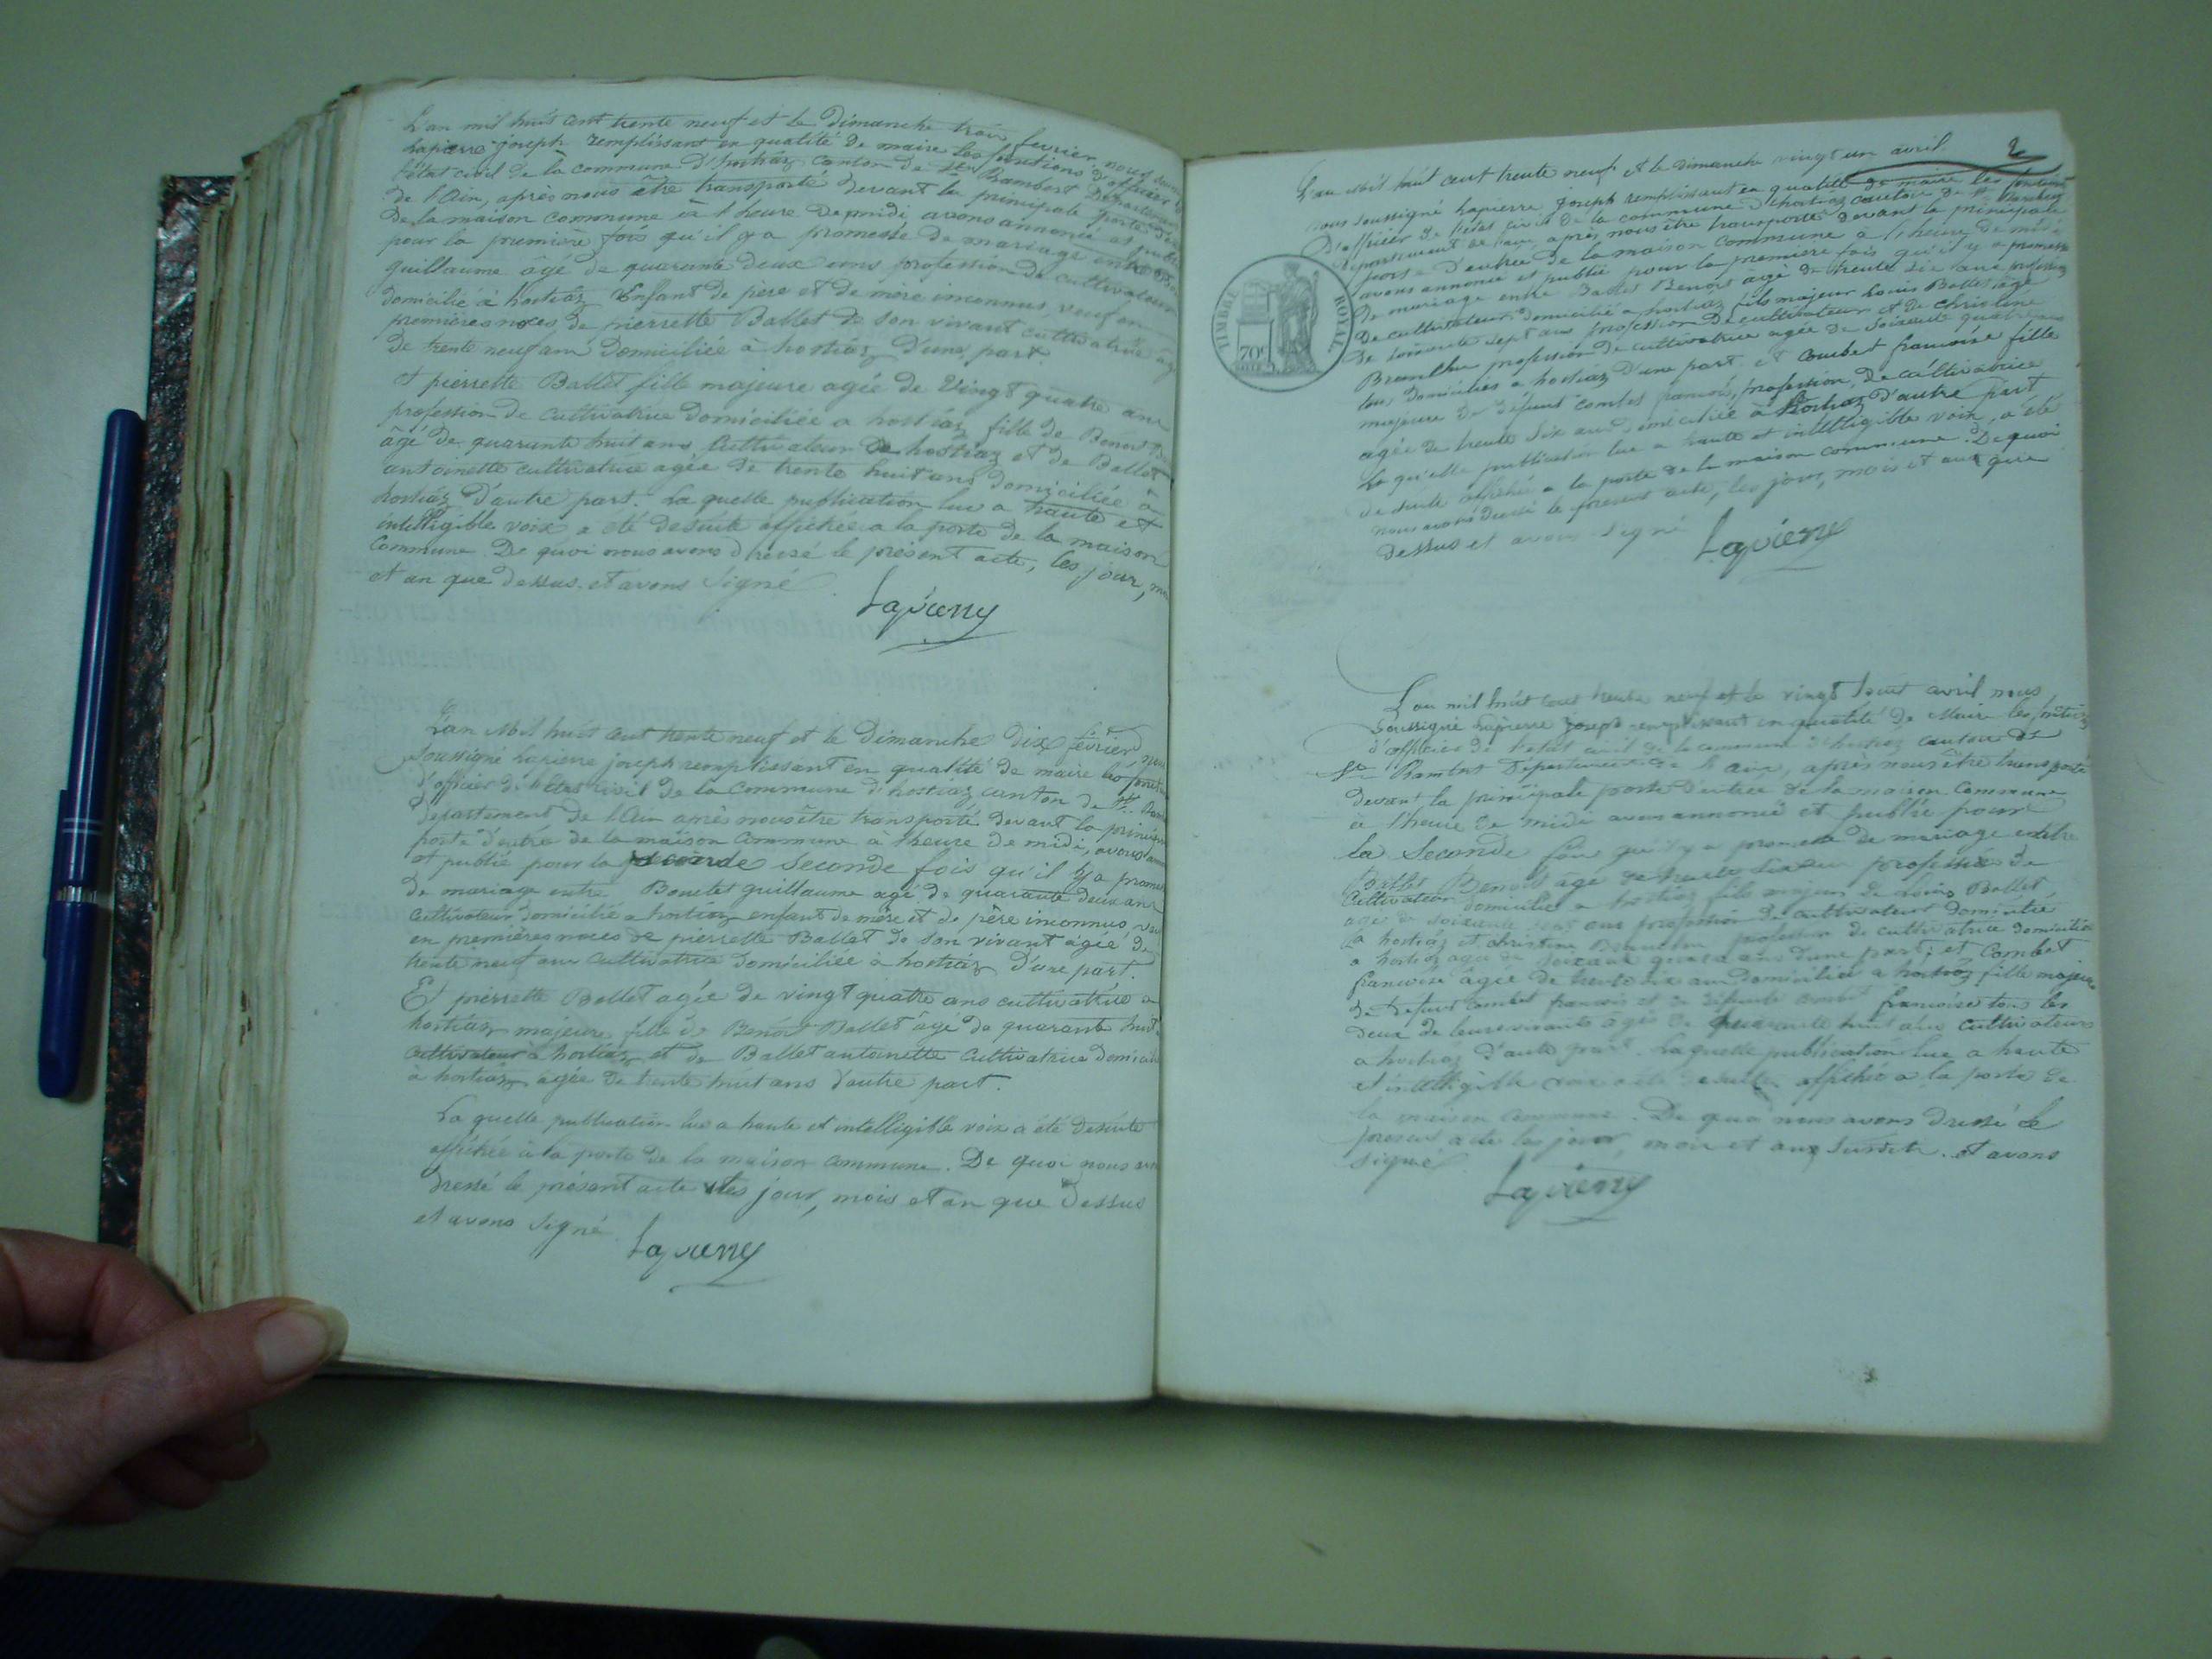 L'an mil huit cent trente neuf et le dimanche trois fevrier, nous
Lapierre joseph remplissant en qualité de maire les fonctions d'officier de
l'état civil de la commune d'hostiaz canton de St Rambert Département
de l'Ain, après nous être transporté devant la principale porte
de la maison commune à l'heure de midi avons annoncé et publié
pour la première fois qu'il y a promesse de mariage entre
guillaume âgé de quarante deux ans profession de cultivateur
domicilié à hostiaz Enfant de père et de mère inconnus, veuf en
premières noces de pierrette Ballet de son vivant cultivatrice
de trente neuf ans Domiciliée à hostiaz d'une part.
et pierrette Ballet fille majeure agée de Vingt quatre ans
profession de cultivatrice domiciliée a hostiaz fille de Benoit
âgé de quarante huit ans Cultivateur de hostiaz et de Ballet
antoinette cultivatrice agée de trente huit ans Domiciliée à
hostiaz d'autre part. La quelle publication lue a haute et
intelligible voix a été desuite affichée a la porte de la maison
Commune. De quoi nous avons dressé le présent acte, les jour,
et an que dessus. et avons signé
Lapierre
L'an Mil huit cent trente neuf et le Dimanche Dix fevrier, nous
soussigné Lapierre joseph remplissant en qualité de maire les
d'officier de l'état civil de la Commune d'hostiaz canton de St
Departement de l'Ain après nous être transporté devant la
porte d'entrée de la maison Commune à l'heure de midi, avons
et publié pour la seconde fois qu'il y a
de mariage entre Bouclet guillaume agé de quarante deux ans
cultivateur domicilié a hostiaz enfant de mère et de père inconnus,
en premières noces de pierrette Ballet de son vivant agée de
trente neuf ans cultivatrice Domiciliée à hostiaz d'une part.
Et pierrette Ballet agée de vingt quatre ans cultivatrice a
hostiaz majeure fille de Benoit Ballet âgé de quarante huit
Cultivateur à hostiaz et de Ballet antoinette Cultivatrice
à hostiaz agée de trente huit ans d'autre part.
La quelle publication lue a haute et intelligible voix a été desuite
affichée à la porte de la maison Commune. De quoi nous
dressé le présent acte les jour, mois et an que Dessus
et avons signé
Lapierre
2
L'an Mil huit cent trente neuf et le dimanche vingt un avril.
nous soussigné Lapierre Joseph remplissant en qualité de maire les fonctions
D'officier de l'état civil de la commune d'hostiaz canton de St Rambert
Departement de l'ain après nous être transporté devant la principale
porte d'entrée de la maison commune à l'heure de midi
avons annoncé et publié pour la première fois qu'il y a promesse
De mariage entre Ballet Benoit âgé de trente six ans profession
De cultivateur domicilié a hostiaz fils majeur Louis Ballet âgé
De soixante sept ans profession De cultivateur et de christine
profession de cultivatrice agée de soixante quatre ans
tous domiciliés a hostiaz d'une part. et Combet françoise fille
majeure de défunt Combet françois, profession, de Cultivatrice
agée de trente six ans domiciliée a hostiaz d'autre part
La quelle publication lue a haute et intelligible voix, a été
de suite affichée a la porte de la maison commune. De quoi
nous avons dressé le present acte, les jour, mois et an que
dessus et avons signé
Lapierre
TIMBRE ROYAL
70c
L'an mil huit cent trente neuf et le vingt huit avril nous
soussigné Lapierre Joseph remplissant en qualité de Maire les fonctions
d'officier de l'état civil de la commune d'hostiaz canton de
St Rambert Département de l'ain, après nous être transporté
devant la principale porte d'entrée de la maison Commune
à l'heure de midi avons annoncé et publié pour
la Seconde fois qu'il y a promesse de mariage entre
Ballet Benoit agé de trente six ans profession de
Cultivateur domicilié a hostiaz fils majeur de Louis Ballet
agé de soixante sept ans profession de cultivateur domicilié
a hostiaz et christine profession de cultivatrice domiciliée
a hostiaz agée de soixante quatre ans d'une part; et Combet
françoise âgée de trente six ans domiciliée a hostiaz fille majeure
de défunt Combet françois et de défunte françoise tous les
deux de leurs vivants âgés de quarante huit ans cultivateurs
a hostiaz d'autre part. La quelle publication lue a haute
et intelligible voix a été desuite affichée a la porte de
la maison commune. De quoi nous avons dressé le
present acte les jour, mois et an susdits. et avons
signé
Lapierre